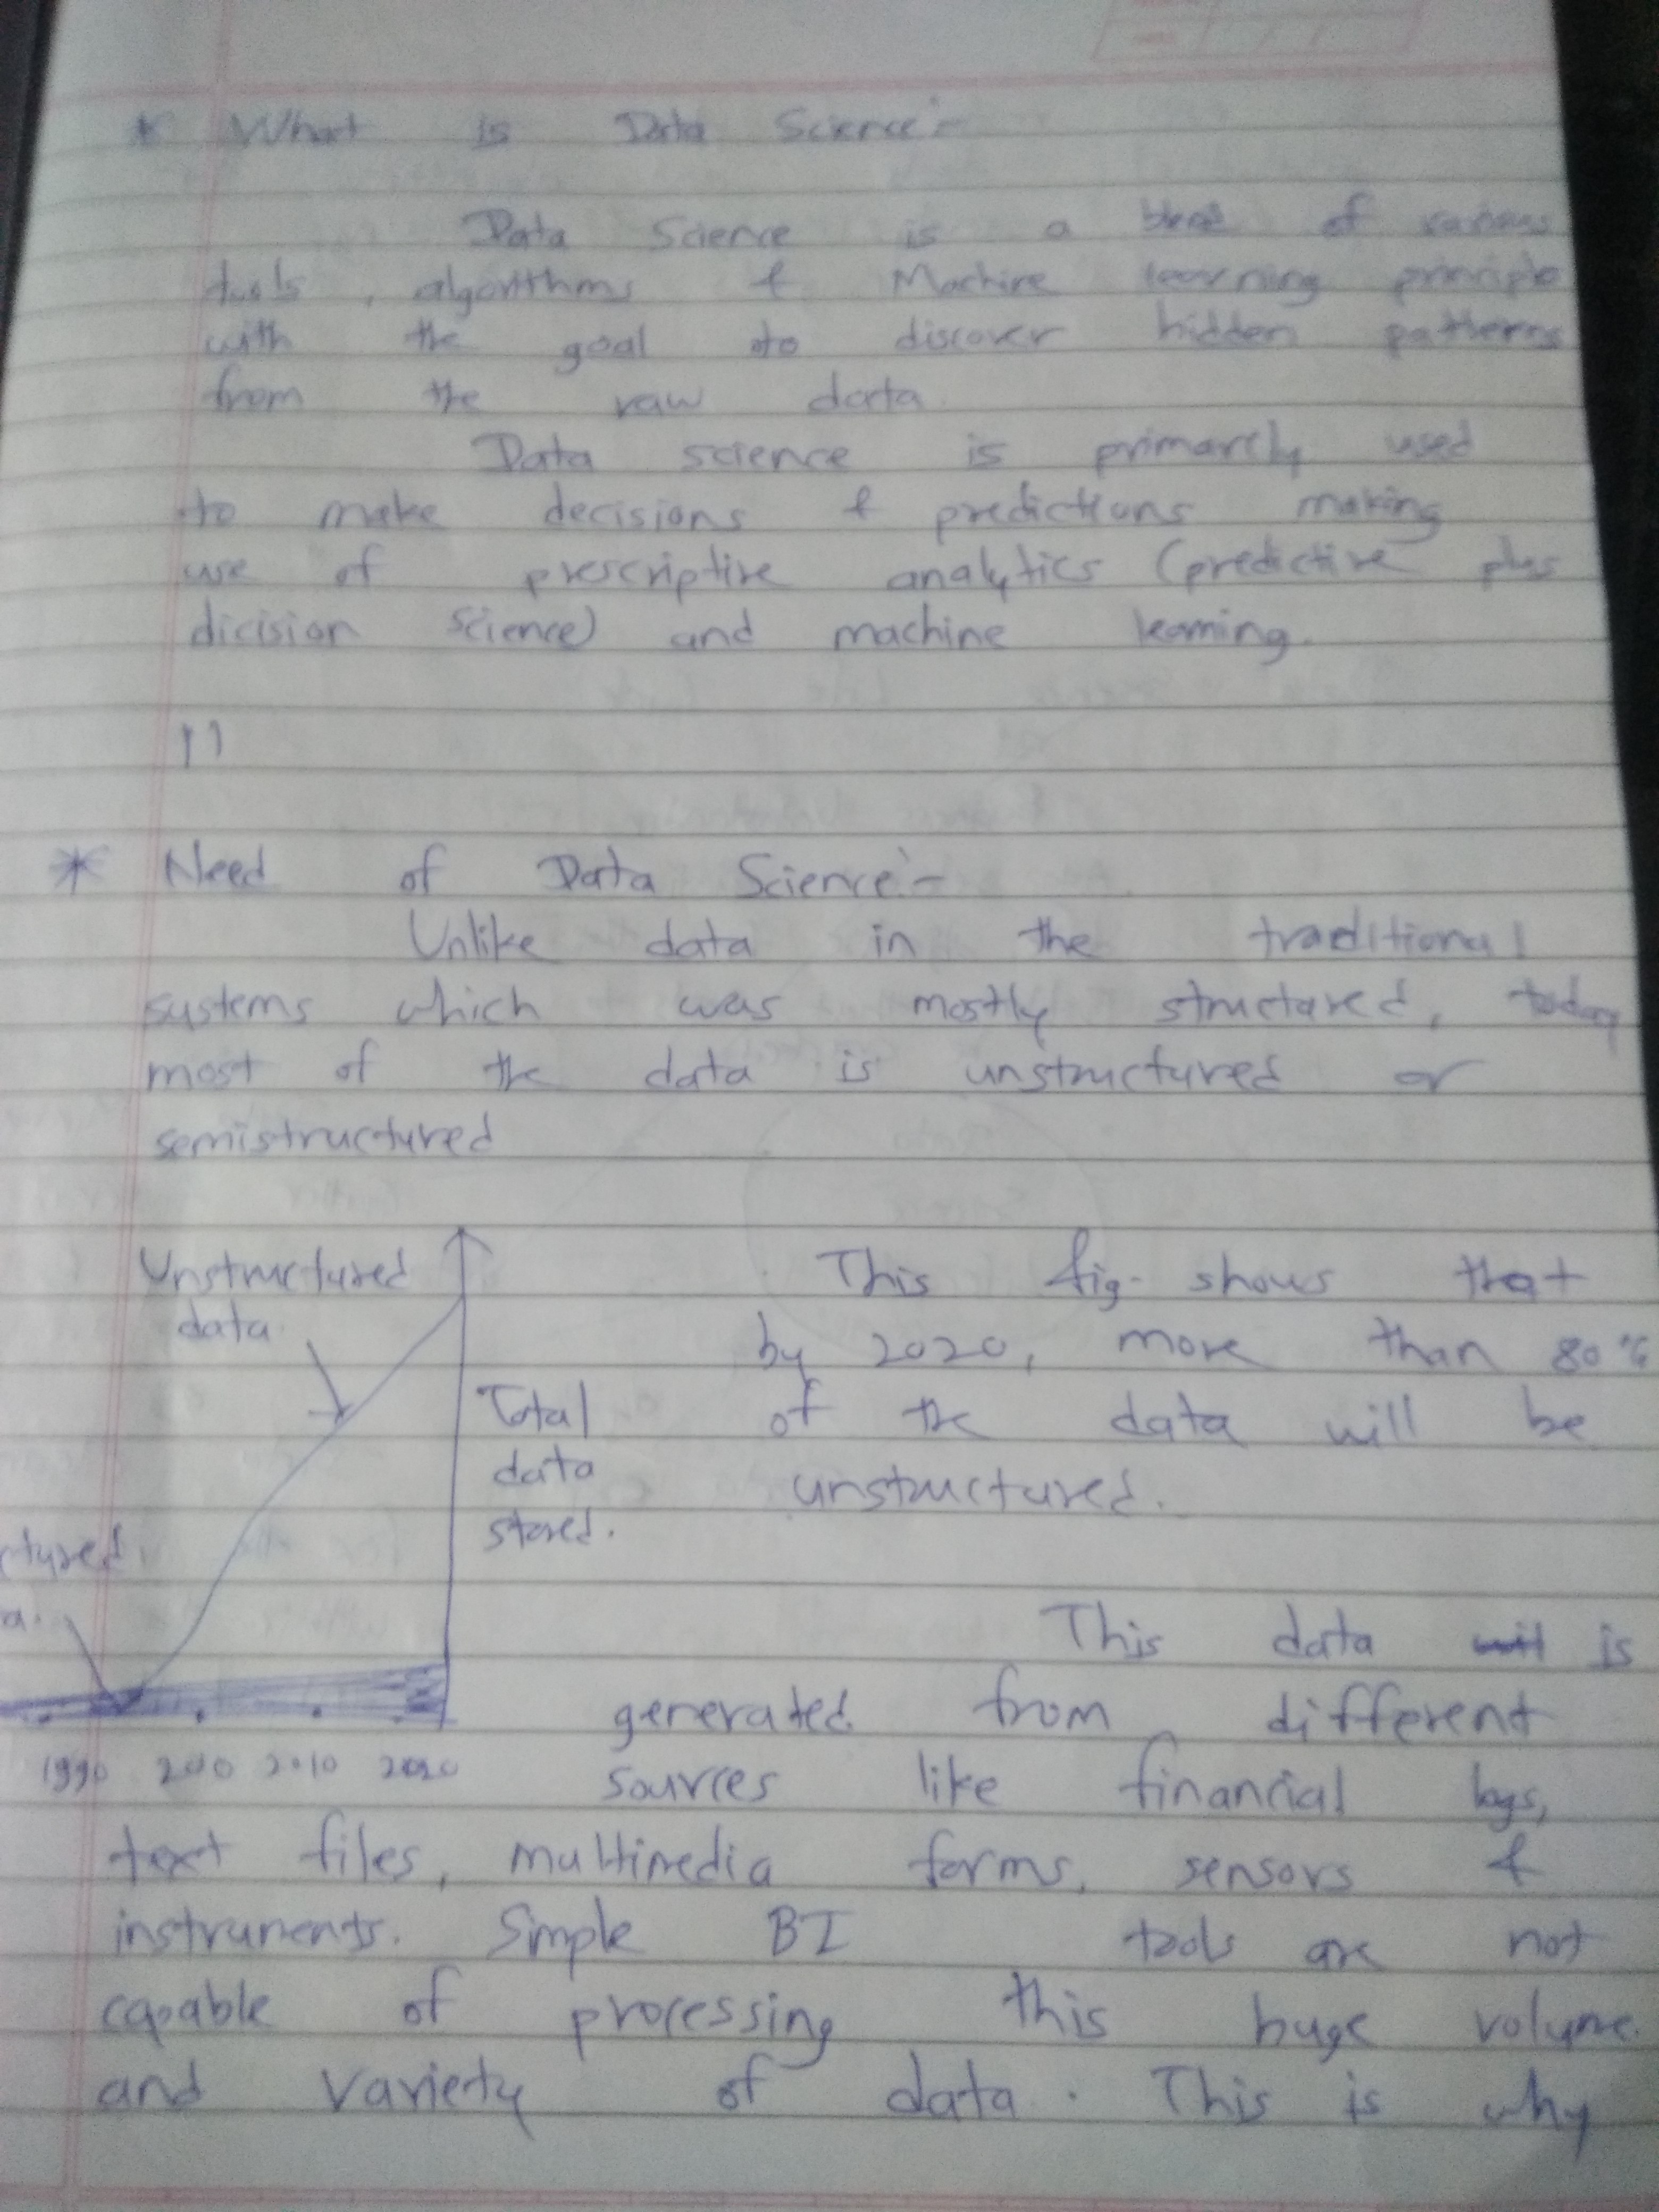 * What is Data Science:-
Data Science is a blend of various
tools, algorithms & Machine learning principle
with the goal to discover hidden patterns
from the raw data
Data science is primarcly used
to make decisions & predictions making
use of prescriptive analytics (predictive plus
dicision science) and machine learning.
11
* Need of Data Science:-
Unlike data in the traditional
systems which was mostly structured, today
most of the data is unstructured or
semistructured
Unstructured
data
Total
data
stored.
ctured
a.
1990 2000 2010 2020
This fig. shows that
by 2020, more than 80%
of the data will be
unstructured.
This data is
generated from different
sources like financial logs,
text files, multimedia forms, sensors &
instruments. Simple BI tools are not
capable of processing this huge volume
and variety of data. This is why